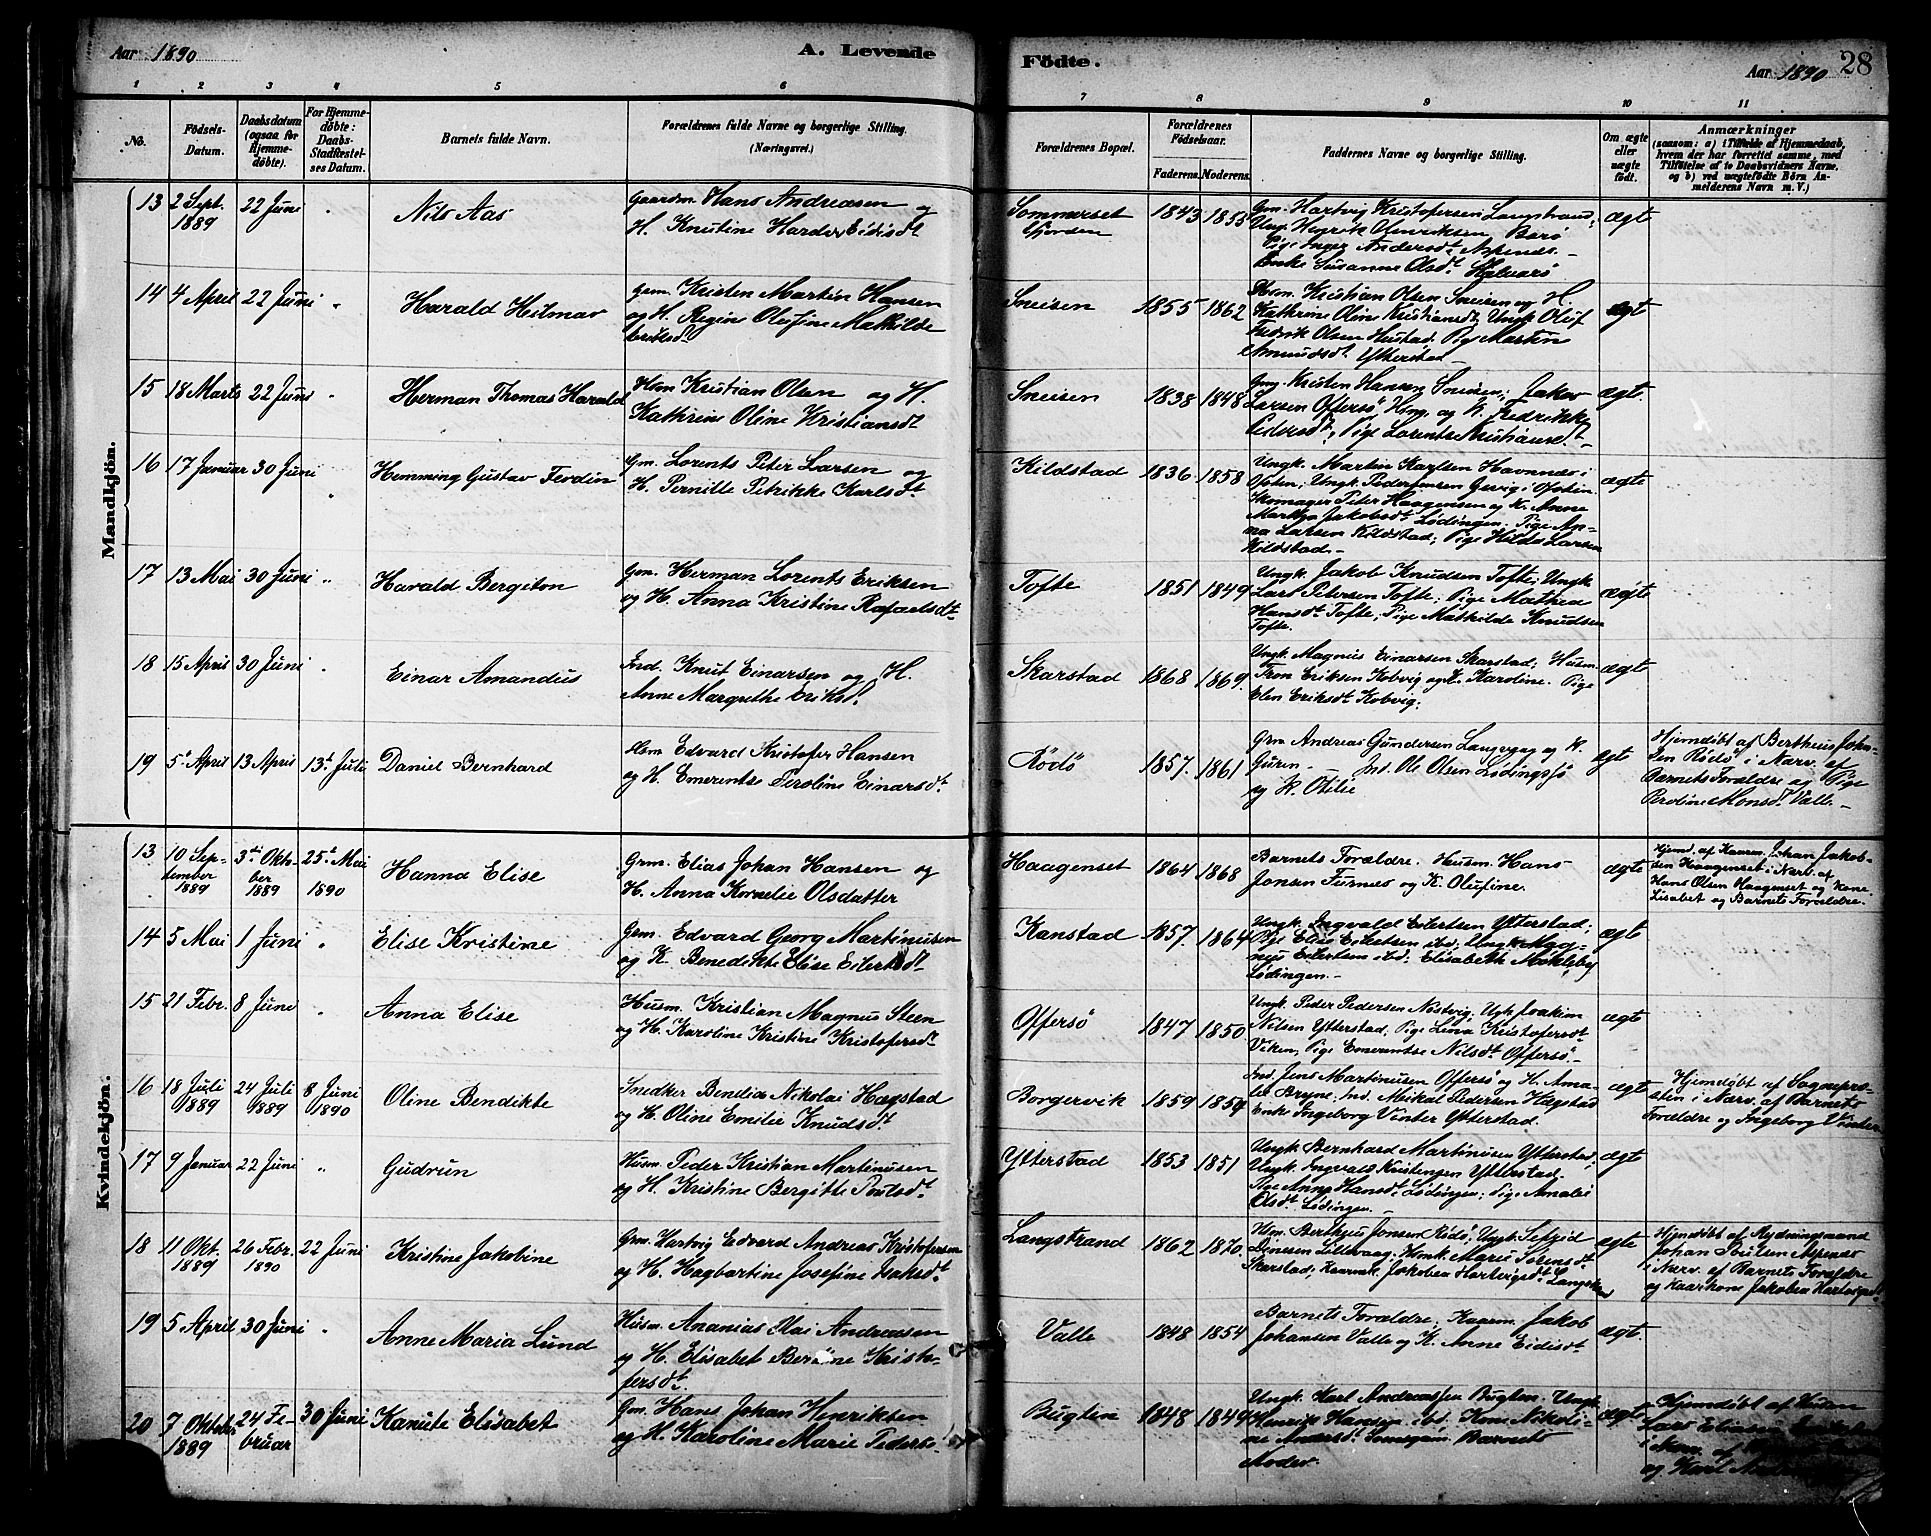 Aar 1890
A. Levende
Födte.
Aar 1890
28
1 2 3 4 5 6 7 8 9 10 11
No.
Födsels-
Datum.
Daabsdatum
(ogsaa for
Hjemme-
döbte).
For Hjemme-
döbte:
Daabs-
Stadfæstel-
ses Datum.
Barnets fulde Navn.
Forældrenes fulde Navne og borgerlige Stilling.
(Næringsvei.)
Forældrenes Bopæl.
Forældrenes
Födselsaar.
Faderens. Moderens.
Faddernes Navne og borgerlige Stilling.
Om ægte
eller
uægte
födt.
Anmærkninger
(saasom: a) i Tilfælde af Hjemmedaab,
hvem der har forrettet samme, med
Tilföielse af to Daabsvidners Navne,
og b) ved uægtefödte Börn An-
melderens Navn m. V.)
Mandkjön.
13 2 Sept. 1889 22 Juni " Nils Aas
Gaardm. Hans Andreasen og
H. Knutine Harder Eidisdt
Sommerset
fjorden
1843 1853
Gm. Hartvig Kristofersen Langstrand;
Ungk. Henrik Olnriksen Barö
Pige Inger Andersdt Aspenes
Enke Susanne Olsdt
ægte
14 4 April 22 Juni " Harald Hilmar
Grm. Kristen Martin Hansen
og H. Regine Olufine Mathilde
Sneisen 1855 1862
Hsm. Kristian Olsen Sneisen og H.
Kathrine Oline Kristiansdt, Ungk Oluf
Fredrik Olsen Hustad. Pig Martin
Amundsdt Ytterstad
ægt
15 18 Marts 22 Juni " Herman Thomas Harald
Hsm Kristian Olsen og H.
Kathrine Oline Kristiansdt
Sneisen 1838 1848
Gm. Kristen Hansen Sneisen; Jakob
Larsen Offersö Hsm. og K. Fredrikke
Pedersdt, Pige Lorentse Kristiansdt
ægt.
16 17 Januar 30 Juni " Hemming Gustav Ferdin
Gm. Lorents Peter Larsen og
H. Pernille Petrikke Karlsdt
Kildstad 1836 1858
Ungk. Martin Karlsen Havnnæs i
Ofoten; Ungk. Peder Jensen i Ofoten
Skomager Peter Haagensen og K. Anne
Marthe Jakobsdt Lödingen. Pige An-
na Larsen Kildstad; Pige Hilda Larsen
Kildstad.
ægte
17 13 Mai 30 Juni " Harald Bergiton
Gm. Herman Lorents Eriksen
og H. Anna Kristine Rafaelsdt
Tofte 1851 1849
Ungk. Jakob Knudsen Tofte; Ungk
Lars Petersen Tofte; Pige Mathea
Hansdt Tofte; Pige Mathilde Knudsen
Tofte.
ægte
18 15 April 30 Juni " Einar Amandus
Ind. Knut Einarsen og H.
Anne Margrethe Eriksd.
Skarstad 1868 1869
Ungk. Magnus Einarsen Skarstad; Husm.
Tron Eriksen Kobvig og K. Karoline. Pige
Elen Eriksdt Kobvig.
ægt
19 5t April 13 April 13t Juli Daniel Bernhard
Hsm Edvard Kristofer Hansen
og H. Emerentse Peroline Einarsdt
Rödö 1857. 1861
Grm Andreas Gundersen Langvaag og K.
Gurin. Ind. Ole Olsen Lödingsjö
og K. Otilie
ægt
Hjemdöbt af Bertheus John-
sen Rödö i Nærv. af
Barnets Forældre og Pige
Peroline Monsdt Valle
Kvindekjön.
13 10 Sep-
tember
1889
3die Okto-
ber
1889
25t Mai
1890
Hanna Elise
Grm. Elias Johan Hansen og
H. Anna Kornelie Olsdatter
Haagenset 1864 1868
Barnets Forældre. Husm. Hans
Jonsen Furnes og K. Olufine.
ægte
Hjemd. af Kaarm. Johan Jakob-
sen Haagenset i Nærv. af
Hans Olsen Haagenset og Kone
Lisabet og Barnets Forældre.
14 5 Mai 1 Juni " Elise Kristine
Grm. Edvard Georg Martinusen
og K. Benedikte Elise Eilertsdt
Kanstad 1857. 1864
Ungk. Ingvald Eilertsen Ytterstad;
Pige Elise Eilertsen ibd; Ungk Mag-
nus Eilertsen ibd. Elisabeth Mökleby
Lödingen.
ægt
15 21 Febr. 8 Juni " Anna Elise
Husm. Kristian Magnus Steen
og H. Karoline Kristine Kristofersdt
Offersö 1847 1850
Ungk. Peder Pedersen Nesvig, Ugk Joakim
Nilsen Ytterstad; Pige Lina Kristofersdt
Viken, Pige Emerentse Nilsdt Offersö.
ægt
16 18 Juli
1889
24 Juli
1889
8 Juni
1890
Oline Bendikte
Snedker Bendix Nikolai Hagstad
og H. Oline Emilie Knudsdt
Borgervik 1859 1859
Ind. Jens Martinusen Offersö og H. Ama-
lie Bryne. Ind. Meikal Pedersen Hagstad
Enke Ingeborg Vinter Ytterstad.
ægt
Hjemdöbt af Sognepre-
sten i Nærv. af Barnets
Forældre og Ingeborg Vinter
17 9 Januar 22 Juni " Gudrun
Husm. Peder Kristian Martinusen
og H. Kristine Bergitte Poulsdt
Ytterstad 1853 1851
Ungk. Bernhard Martinusen Ytterstad;
Ungk. Ingvald Kristensen Ytterstad.
Pige Anna Hansdt Lödingen; Pige Amalie
Olsdt Lödingen.
ægt
18 11 Okt.
1889
26 Febr.
1890
22 Juni
Kristine Jakobine
Grm. Hartvig Edvard Andreas Kristofersen
og H. Hagbartine Josefine Isaksdt
Langstrand 1862 1870.
Hsm. Bertheus Jonsen Rödö; Ungk. Sefrid
Dinesen Lillevaag. Hsmk. Marie Sörensdt
Skarstad; Kaarmk. Jakobea Hartvigsdt Langstrand
ægte
Hjemdöbt af Rydningsmand
Johan Aspenes
i Nærv. af Barnets Forældre
og Kaarkone Jakobea Hartvigsdt
19 5 April 30 Juni " Anne Maria Lund
Husm. Ananias Olai Andreassen
og H. Elisabet Berdine Kristo-
fersdt
Valle 1848 1854
Barnets Forældre. Kaarm. Jakob
Johansen Valle og K. Anne Eidisdt
ægt.
20 7 Oktober
1889
24 Fe-
bruar
30 Juni
Kanute Elisabet
Gm. Hans Johan Henriksen
og H. Karoline Marie Peders
Buglen 1848 1849
Ungk. Karl Andreassen Buglen. Ungk
Henrik Hansen ibd. Kone Nikoli-
ne Andersdt. Barnets
Moder.
ægt
Hjemdöbt af
Lars Eliasen
i Nærv. af
og Karl